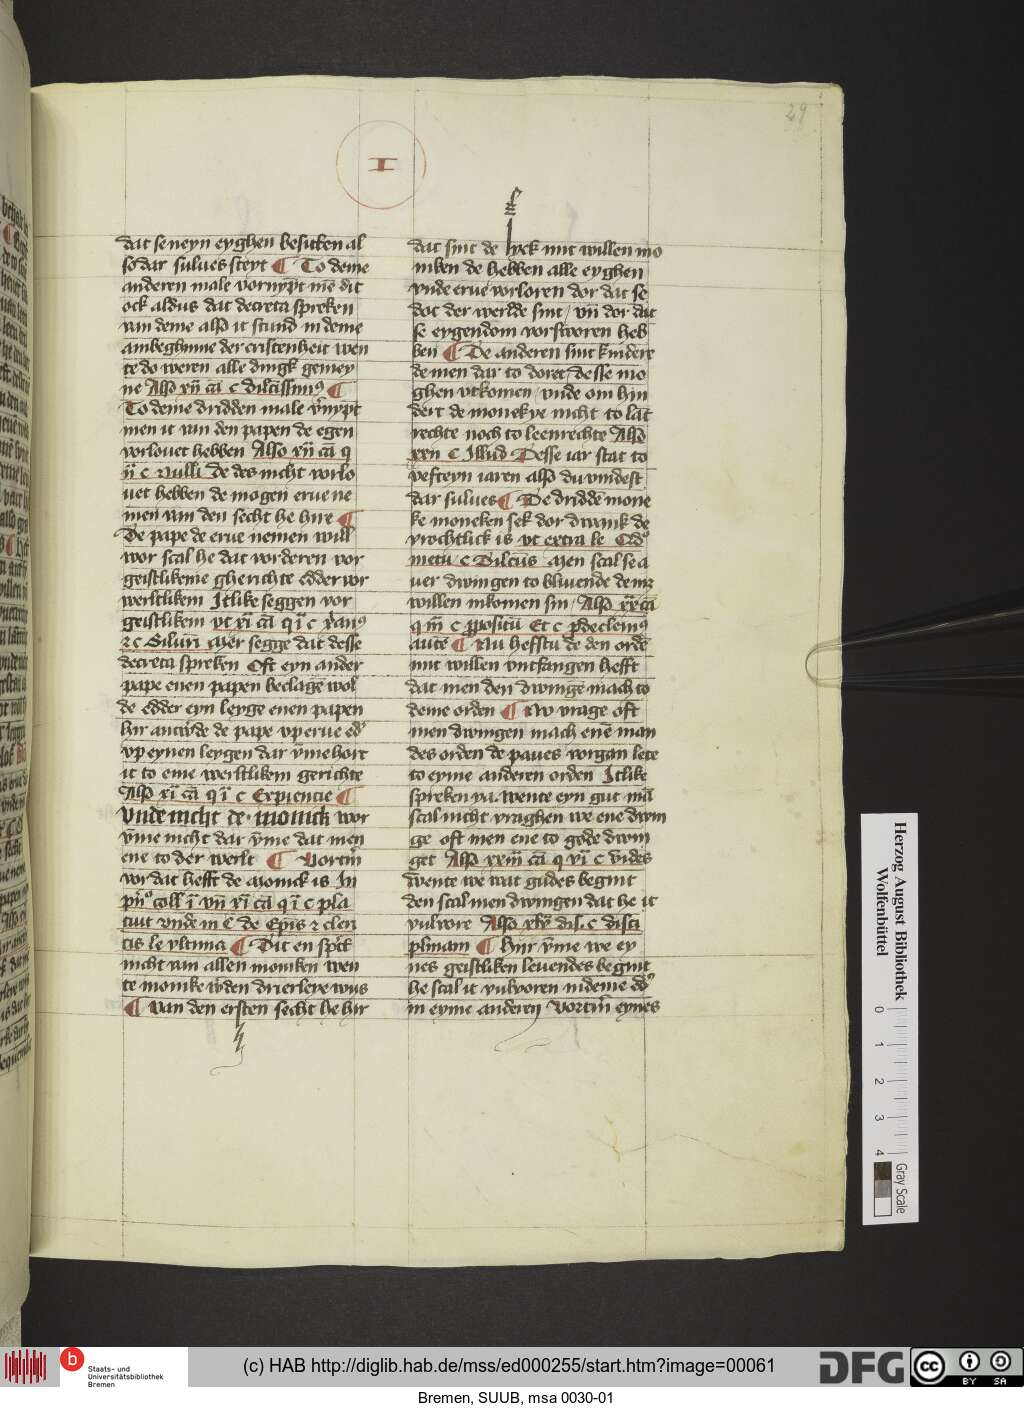 29
I
dat se neyn eyghen besitten al
so dar sulues steyt ¶ To deme
anderen male vornympt mē dit
ock aldus dat decreta spreken
van deme also it stund in deme
ambeghinne der cristenheit wen
te do weren alle dingk gemey
ne Also xij cā c dilcissimꝰ ¶
To deme dridden male v̄nypt
men it van den papen de egen
vorlouet hebben Also xij cā q
ij c Nulli de des nicht vorlo
uet hebben de mogen erue ne
men van den secht he hire ¶
De pape de erue nemen will
wor scal he dat vorderen vor
geistlikeme gherichte edder vor
werltlikem Itlike seggen vor
geistlikem vt xi cā q i c
⁊ c Siluri Mer segge dat desse
decreta spreken Oft eyn ander
pape enen papen beclagē wol
de edder eyn leyge enen papen
hir antwrde de pape vp erue ed̓
vp eynen leygen dar v̄me hort
it to eme werltlikem gerichte
Also xi cā q i c Experiencie ¶
Vnde nicht de monick wor
v̄me nicht dar v̄me dat men
ene to der werlt ¶ Vortm̄
vor dat hefft de Monick is In
coll i vn̄ xi cā q i c pla
cuit vnde in C de Epis ⁊ cleri
cis le vltima ¶ Dit en sprick
nicht van allen moniken wen
te monike w̓den drierleye wijs
¶ Van den ersten secht he hir
dat sint de sick mit willen mo
niken de hebben alle eyghen
vnde erue vorloren dor dat se
dot der werlde sint / vn̄ dor dat
se eygendom vorsworen heb
ben ¶ De anderen sint kindere
de men dar to doret desse mo
ghen vtkomen / vnde om hin
dert de monekye nicht to lāt
rechte noch to leenrechte Also
xxij c Illud Desse iar stat to
vefteyn iaren also du vindest
dar sulues ¶ De dridde mone
ke moneken sek dor dwank de
vrochtlick is vt extra le
metu c Dilcūs Men scal se a
uer dwingen to bliuende de mz
willen inkomen sin / Also xx cā
q iij c p̄positū Et c
autē ¶ Nu hefftu de den ordē
mit willen vntfangen hefft
dat men den dwingē mach to
deme orden ¶ Nv vrage oft
men dwingen mach enē man
des orden de paues vorgan lete
to eyme anderen orden Itlike
spreken ya. wente eyn gut mā
scal nicht vraghen we ene dwin
ge oft men ene to gode dwin
get Also xxiij cā q vi c vides
Wente we wat gudes begint
den scal men dwingen dat he it
vulvore Also xlv dis. c disci
plinam ¶ Hir v̄me we ey
nes geistliken leuendes begint
he scal it vulvoren in deme ed̓
in eyme anderen Vortm̄ eynes
Herzog August Bibliothek
Wolfenbüttel
0 1 2 3 4
Gray Scale
b
Staats- und
Universitätsbibliothek
Bremen
(c) HAB http://diglib.hab.de/mss/ed000255/start.htm?image=00061
DFG
cc
BY SA
Bremen, SUUB, msa 0030-01